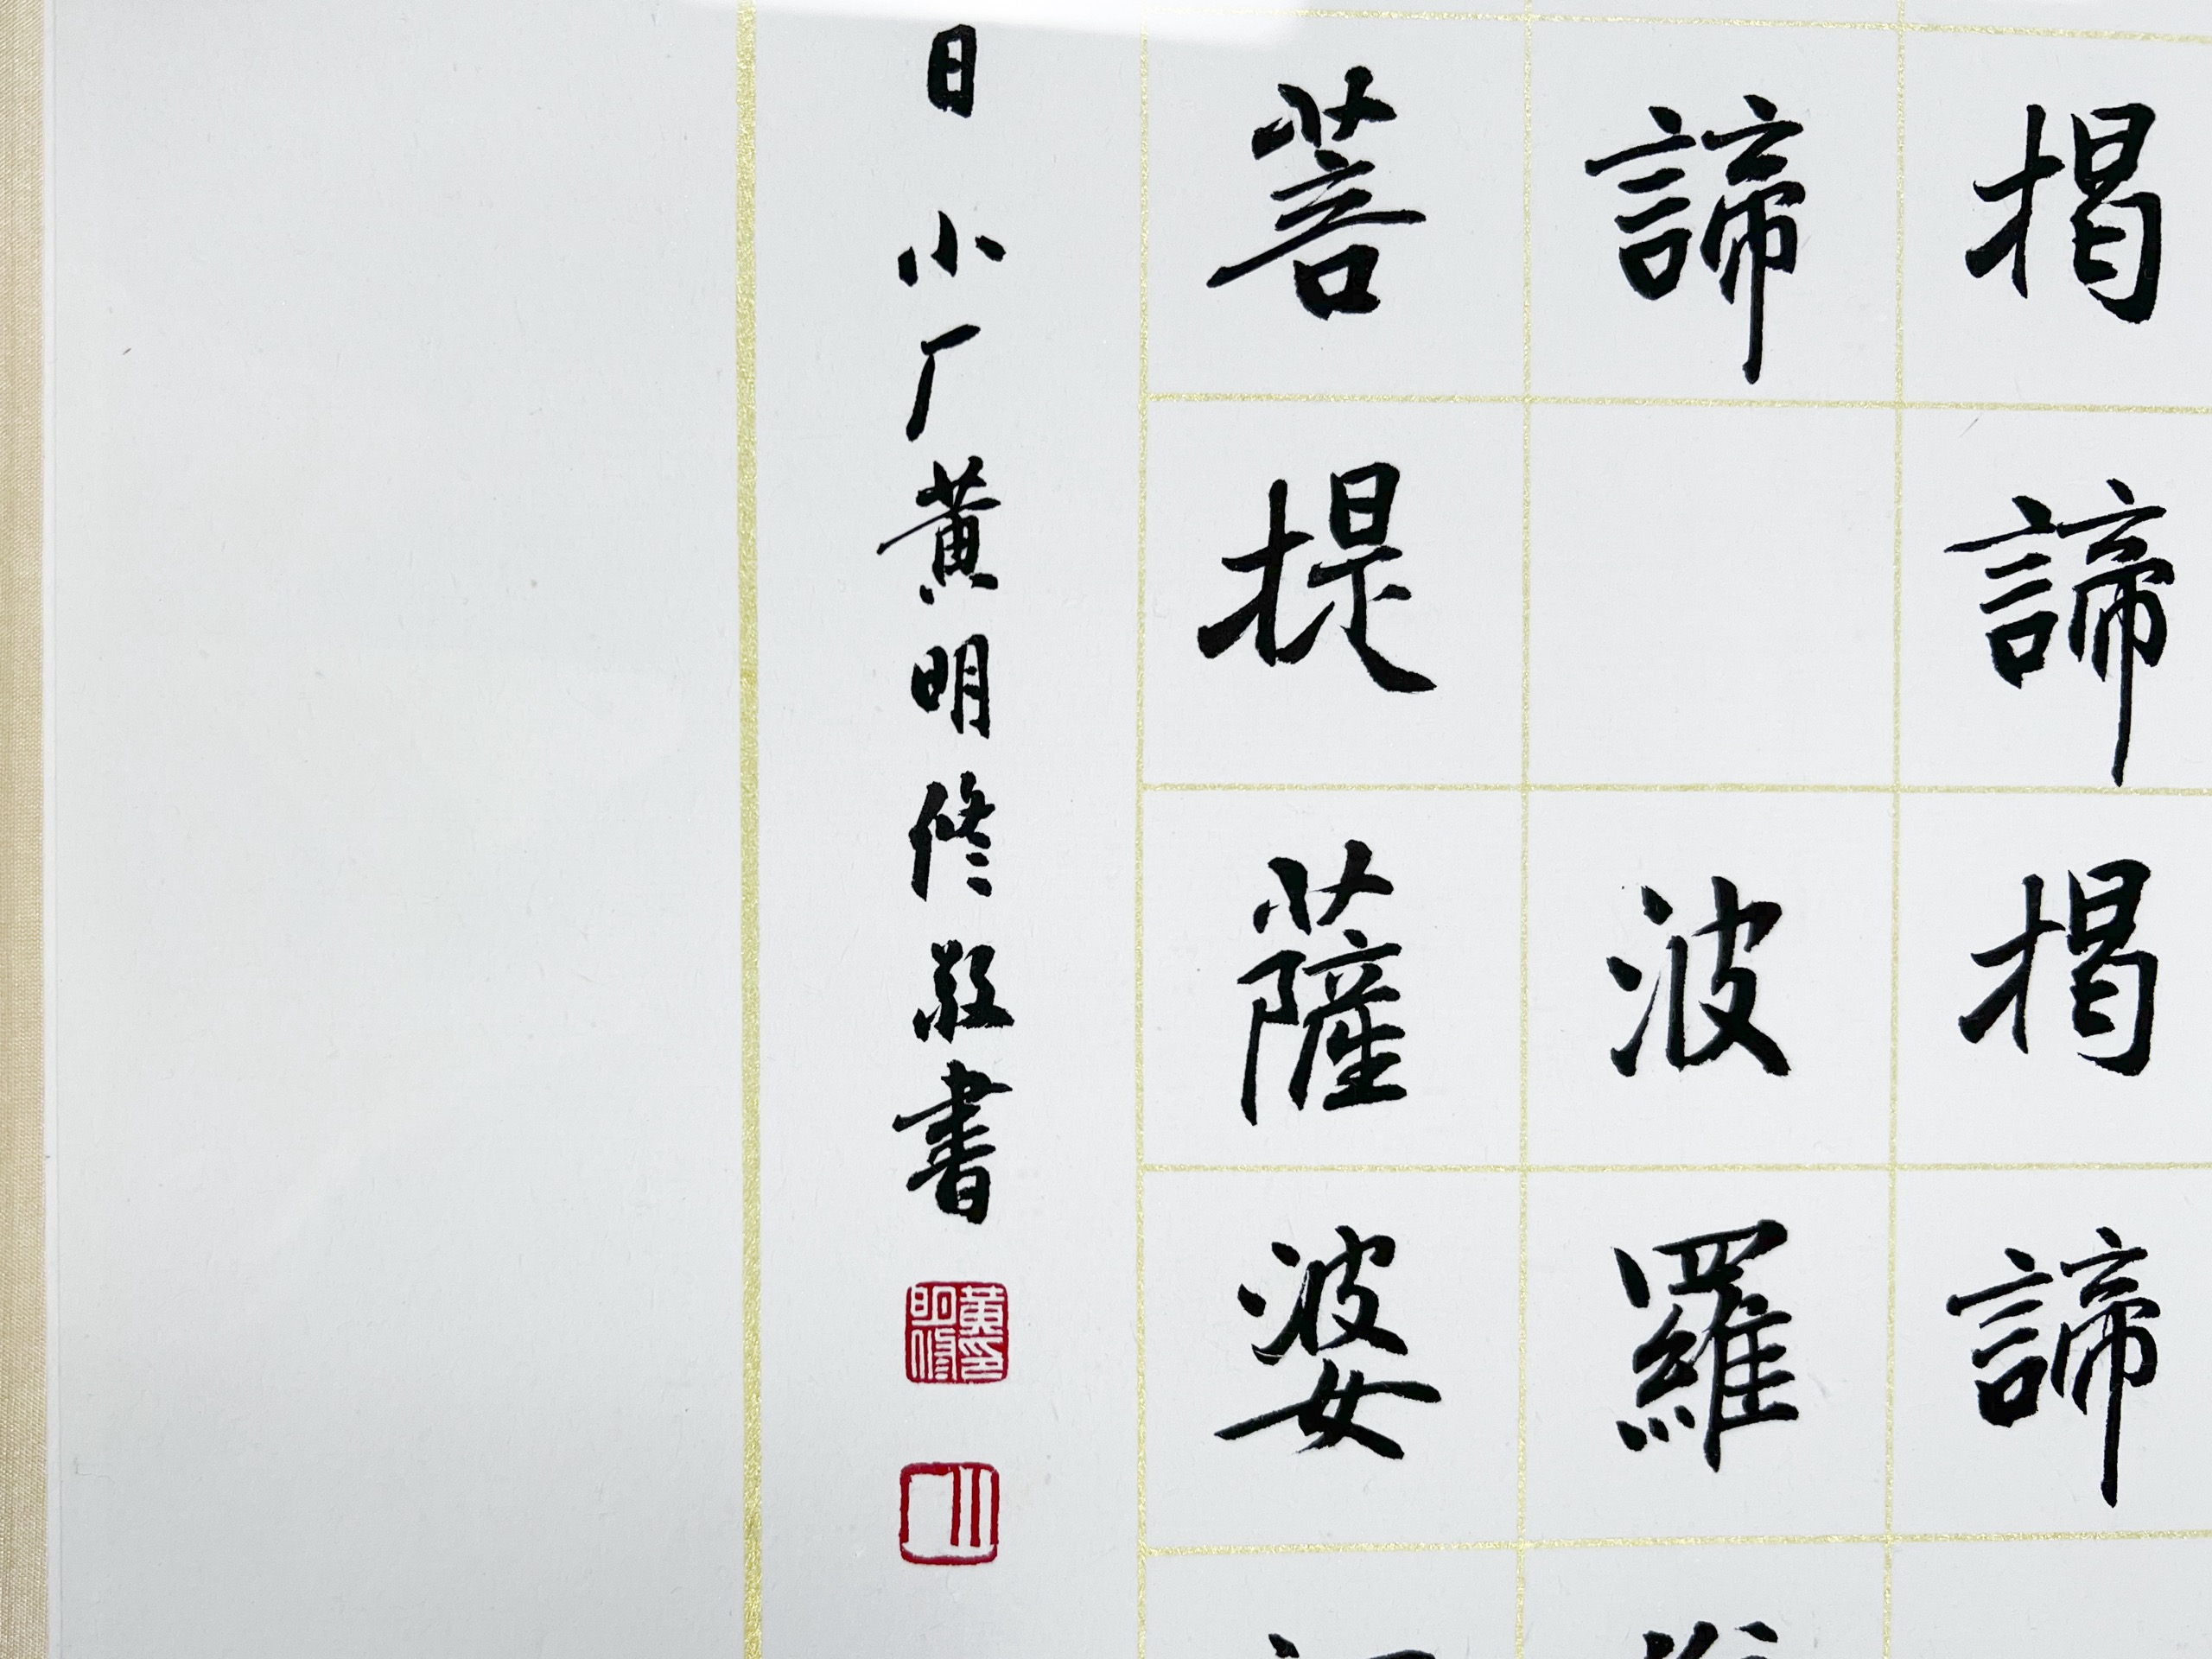 揭諦揭諦
諦 波羅
菩提薩婆
日 小厂黃明修敬書
黃明修印
小厂